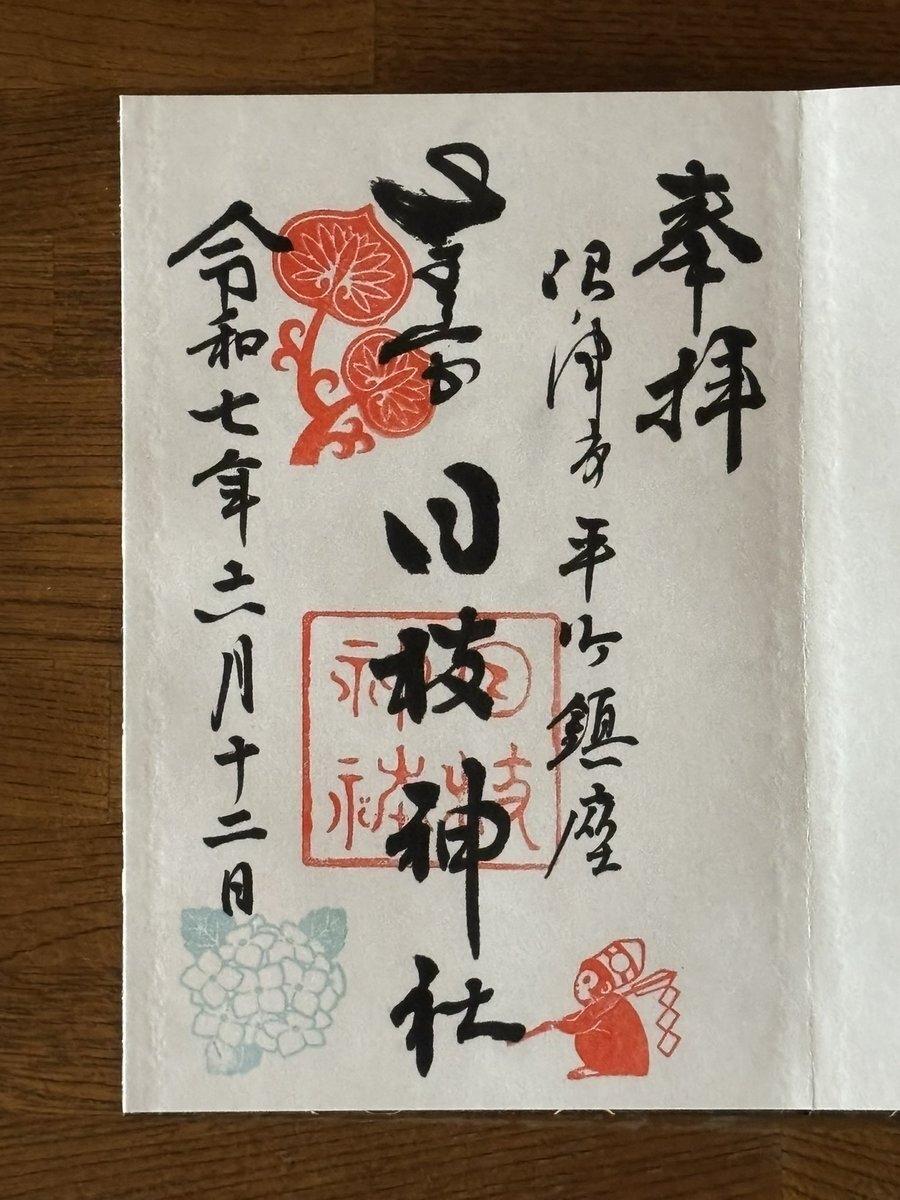 奉拝
沼津市平町鎮座
日枝神社
令和七年六月十二日
日枝
神社